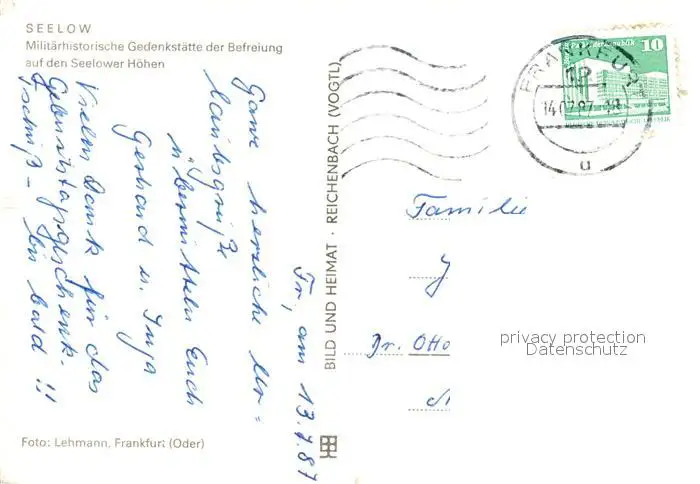 SEELOW
Militärhistorische Gedenkstätte der Befreiung
auf den Seelower Höhen
Fr, am 13.7.87
Ganz herzliche Ur=
laubsgrüße
übermitteln Euch
Gerhard u. Inga
Vielen Dank für das
Geburtstagsgeschenk.
Tschüß – bis bald !!!
Foto: Lehmann, Frankfurt (Oder)
BILD UND HEIMAT · REICHENBACH (VOGTL)
FRANKFURT
1P
14.07.87
u
10
Familie
Dr. Otto
privacy protection
Datenschutz